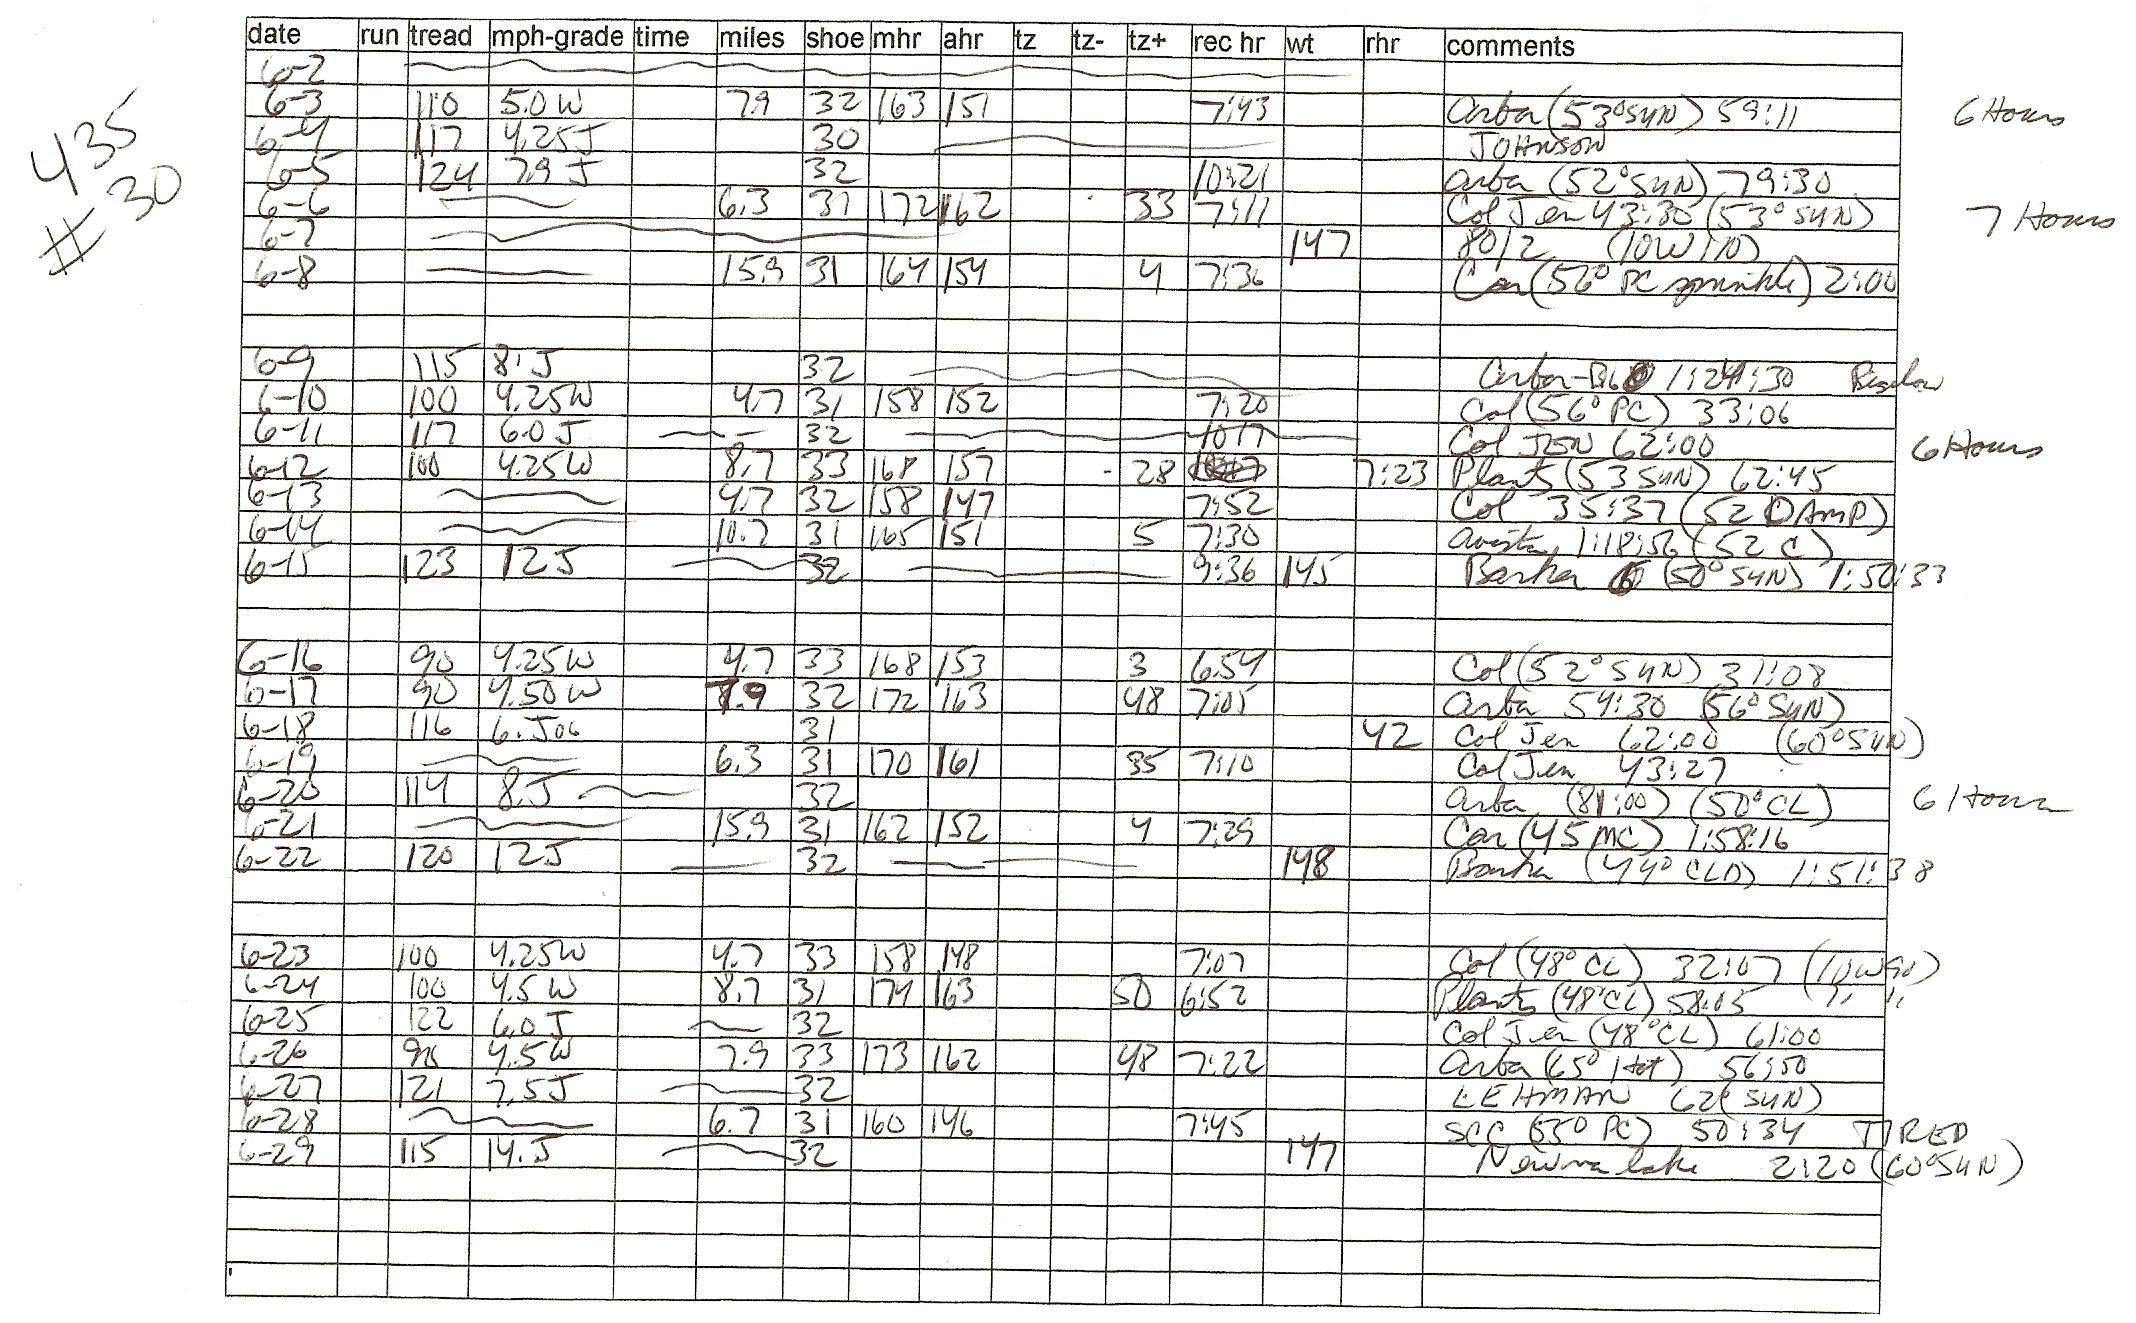 date run tread mph-grade time miles shoe mhr ahr tz tz- tz+ rec hr wt rhr comments
6-2
6-3 110 5.0 W 7.9 32 163 151 7:43 Arbor (53° SUN) 59:11 6 Hours
6-4 117 4.25 J 30 JOHNSON
435
#30
6-5 124 7.9 J 32 10:21 Arbor (52° SUN) 79:30
6-6 6.3 31 172 162 33 7:11 Col Jen 43:30 (53° SUN) 7 Hours
6-7 147 80/2 (10W110)
6-8 15.9 31 164 154 4 7:36 Car (56° PC sprinkle) 2:00
6-9 115 8. J 32 1:24:30
6-10 100 4.25W 4.7 31 158 152 7:20 Col (56° PC) 33:06
6-11 117 6.0 J 32 1017 Col JEN 62:00 6 Hours
6-12 100 4.25W 8.7 33 168 157 28 7:23 Plants (53 SUN) 62:45
6-13 4.7 32 158 147 7:52 Col 35:37 (52 DAMP)
6-14 10.7 31 165 151 5 7:30 Avista 1:18:56 (52 C)
6-15 123 12 J 32 9:36 145 Barker (50° SUN) 1:50:33
6-16 90 4.25W 4.7 33 168 153 3 6:54 Col (52° SUN) 31:08
6-17 90 4.50 W 7.9 32 172 163 48 7:05 Arbor 54:30 (56° SUN)
6-18 116 6. JOG 31 42 Col Jen 62:00 (60° SUN)
6-19 6.3 31 170 161 35 7:10 Col Jen 43:27
6-20 114 8. J 32 Arbor (81:00) (50° CL) 6 Hours
6-21 15.9 31 162 152 4 7:29 Car (45 MC) 1:58:16
6-22 120 12 J 32 148 Barker (44° CLD) 1:51:38
6-23 100 4.25W 4.7 33 158 148 7:07 Col (48° CL) 32:07 (10W90)
6-24 100 4.5 W 8.7 31 174 163 50 6:52 Plants (48° CL) 58:05 " "
6-25 122 6.0 J 32 Col Jen (48° CL) 61:00
6-26 90 4.5W 7.9 33 173 162 48 7:22 Arbor (65° Hot) 56:50
6-27 121 7.5 J 32 LEHMAN 62 (SUN)
6-28 6.7 31 160 146 7:45 SCC (53° PC) 50:34 TIRED
6-29 115 14. J 32 147 Newman lake 2:20 (60° SUN)